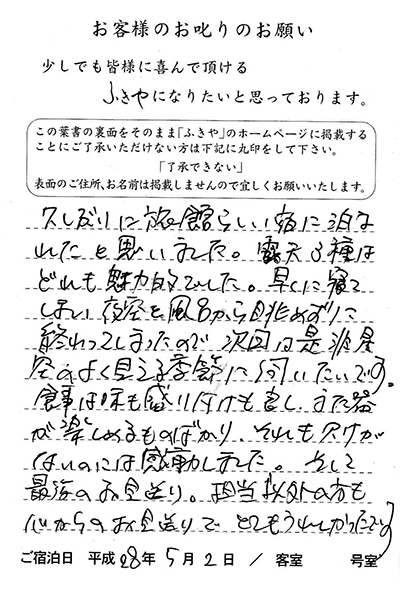 お客様のお叱りのお願い
少しでも皆様に喜んで頂ける
ふきやになりたいと思っております。
この葉書の裏面をそのまま「ふきや」のホームページに掲載する
ことにご了承いただけない方は下記に丸印をして下さい。
「了承できない」
表面のご住所、お名前は掲載しませんので宜しくお願いいたします。
久し振りに旅館らしい宿に泊な
れたと思いました。露天3種は
どれも魅力的でした。早くに寝て
しまい夜空を風呂から眺めずに
終わってしまったので次回は是非星
空のよく見える季節に伺いたいです。
食事は味も盛り付けも良し、また器
が楽しめるものばかり、それも欠けが
ないのには感動しました。そして
最後のお見送り。担当以外の方も
心からのお見送りでとてもうれしかったです
ご宿泊日 平成28年5月2日 / 客室 号室